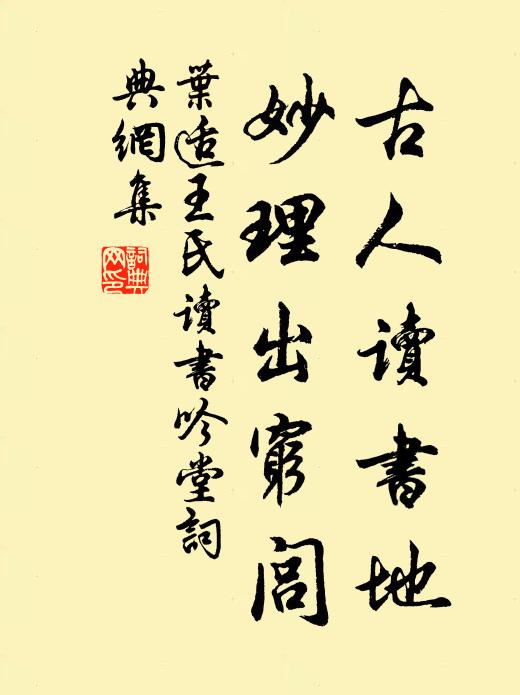 古人讀書地
妙理出窮閭
葉适王氏讀書吟堂詞
典網集
詞典
网印